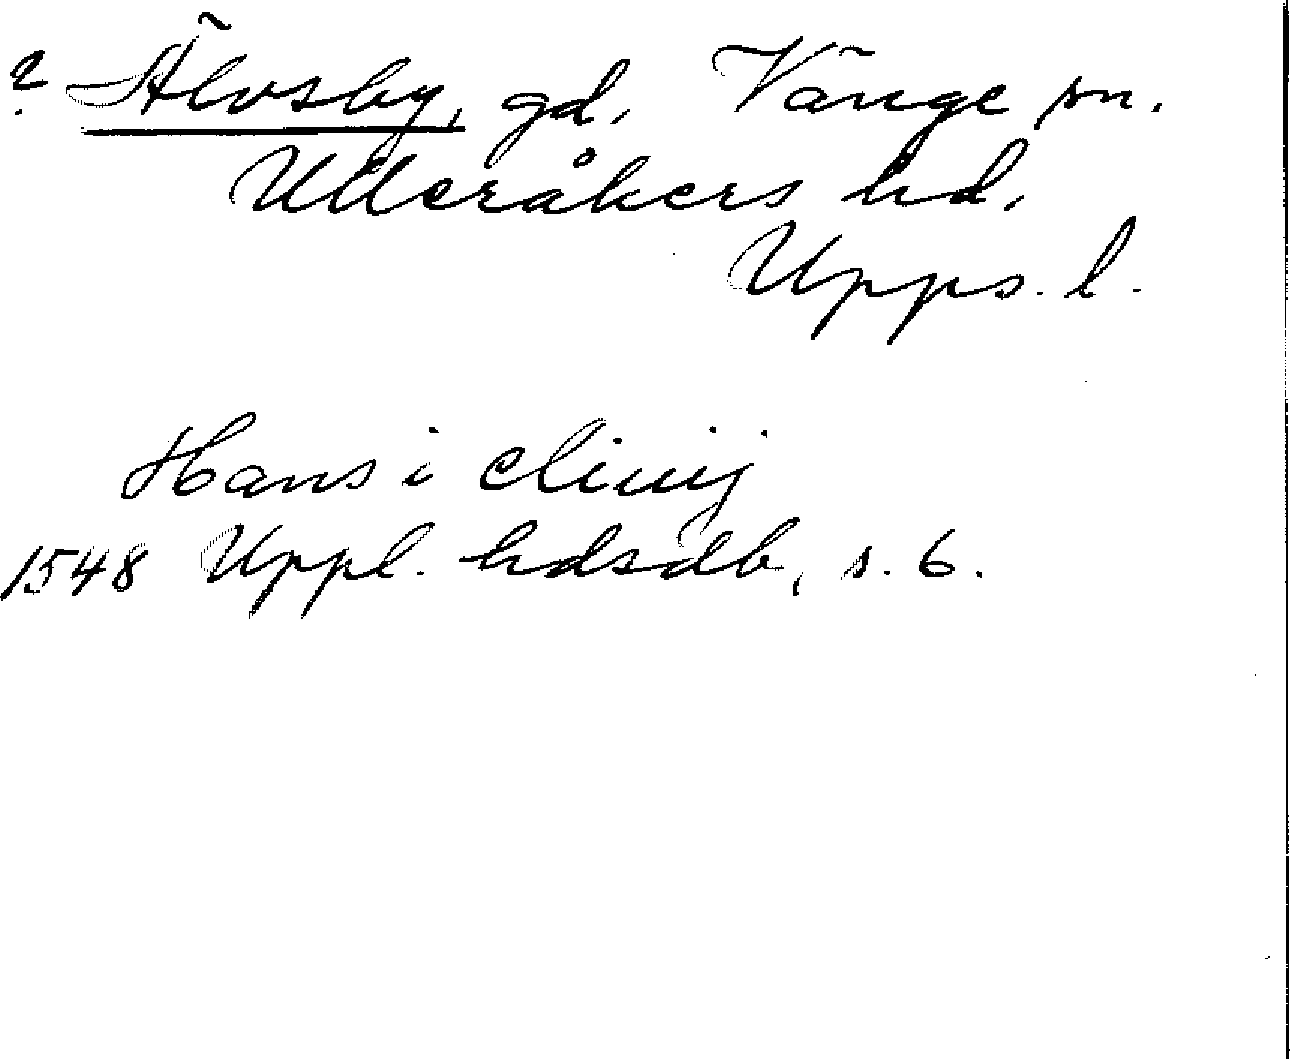 ? Älvsby, gd, Vänge sn.
Ulleråkers hd.
Upps. l.
Hans i
1548 Uppl. hdsdb, s. 6.